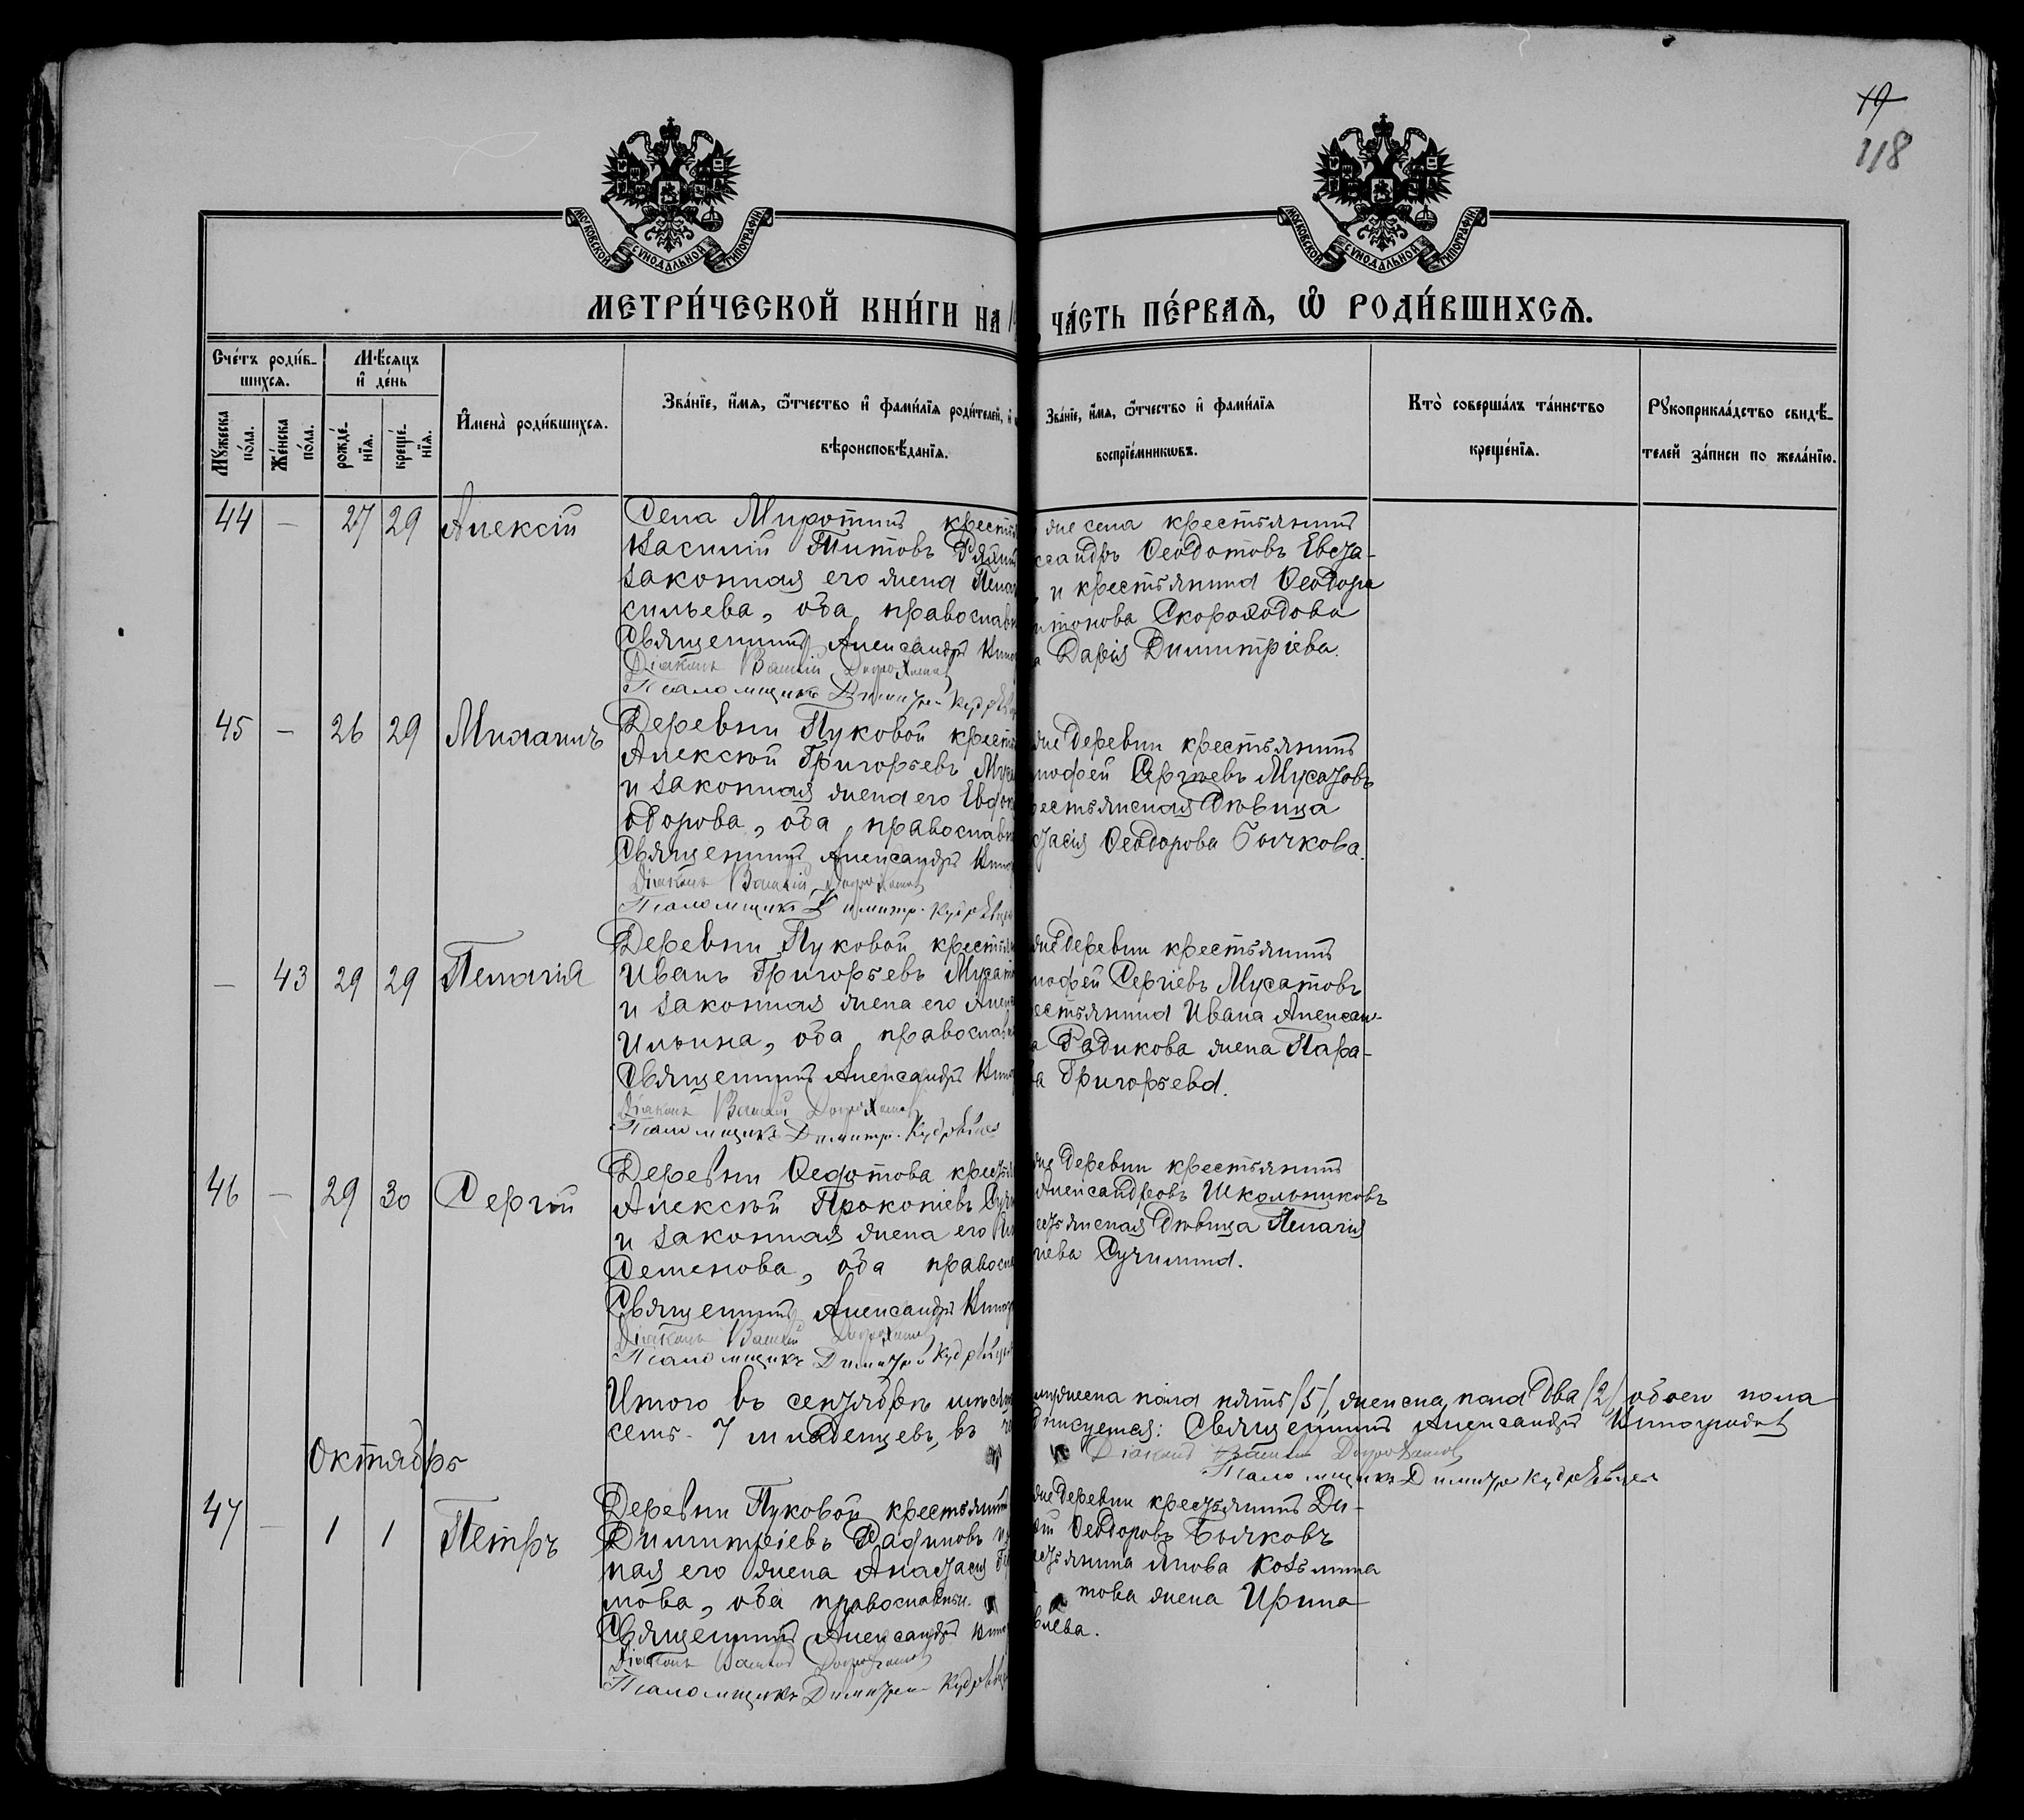 19
118
МОСКОВСКОЙ СУНОДАЛЬНОЙ ТИПОГРАФІИ
МОСКОВСКОЙ СУНОДАЛЬНОЙ ТИПОГРАФІИ
МЕТРИ́ЧЕСКОЙ КНИ́ГИ НА
ЧА́СТЬ ПЕ́РВАЯ, Ѽ РОДИ́ВШИХСЯ.
Сче́тъ роди́в-
шихся.
Мѣ́сяцъ
и҆ де́нь
Мꙋ́жеска по́ла.
Же́нска по́ла.
рожде́-нїя.
креще́-нїя.
И҆мена̀ роди́вшихся.
Зва́нїе, и҆́мя, ѻ҆́тчество и҆ фами́лїя роди́телей, и҆
вѣроисповѣ́данїя.
Зва́нїе, и҆́мя, ѻ҆́тчество и҆ фами́лїя
воспрїе́мникѡвъ.
Кто̀ соверша́лъ та́инство
креще́нїя.
Рꙋкоприкла́дство свидѣ́-
телей за́писи по жела́нїю.
44 — 27 29 Алексій
Села Миротинъ крестья
Василій Титовъ
законная его жена Пела
сильева, оба православн
Священникъ Александръ Вино
Діаконъ Василій Доброхотов
Псаломщикъ Димитрій Кудрявц
же села крестьянинъ
ександръ Ѳеодотовъ Евста-
и крестьянина Ѳеодора
итонова Скороходова
а Дарія Димитріева.
45 — 26 29 Михаилъ
Деревни Луковой крестья
Алексѣй Григорьевъ Муса
и законная жена его Евдок
одорова, оба православн
Священникъ Александръ Вино
Діаконъ Василій Доброхотов
Псаломщикъ Димитр. Кудрявце
же деревни крестьянинъ
мофей Сергіевъ Мусатовъ
рестьянская дѣвица
стасія Ѳеодорова Бычкова.
— 43 29 29 Пелагія
Деревни Луковой крестьян
Иванъ Григорьевъ Мусато
и законная жена его Алек
Ильина, оба православн
Священникъ Александръ Вино
Діаконъ Василій Доброхотов
Псаломщикъ Димитр. Кудрявцев
же деревни крестьянинъ
мофей Сергіевъ Мусатовъ
рестьянина Ивана Алексан-
а Радикова жена Пара-
ва Григорьева.
46 — 29 30 Сергій
Деревни Ѳедотова крестья
Алексѣй Прокопіевъ
и законная жена его
Семенова, оба правосла
Священникъ Александръ Виногр
Діаконъ Василій Доброхотов
Псаломщикъ Димитрій Кудрявцев
же деревни крестьянинъ
Александровъ Школьниковъ
рестьянская дѣвица Пелагія
гіева Сучилина.
Итого въ сентябрѣ мѣсяц
семь - 7 младенцевъ, въ
мужеска пола пять /5/, женска пола два /2/, обоего пола
писуемся: Священникъ Александръ Виноградов
Діаконъ Василій Доброхотов
Псаломщикъ Димитр Кудрявцев
Октябрь
47 — 1 1 Петръ
Деревни Луковой крестьянинъ
Димитріевъ
ная его жена Анастасія
мова, оба православны.
Священникъ Александръ Вино
Діаконъ Василій Доброхотов
Псаломщикъ Димитрій Кудрявце
же деревни крестьянинъ Ди-
ій Ѳеодоровъ Бычковъ
рестьянина Якова Козьмина
това жена Ирина
вліева.